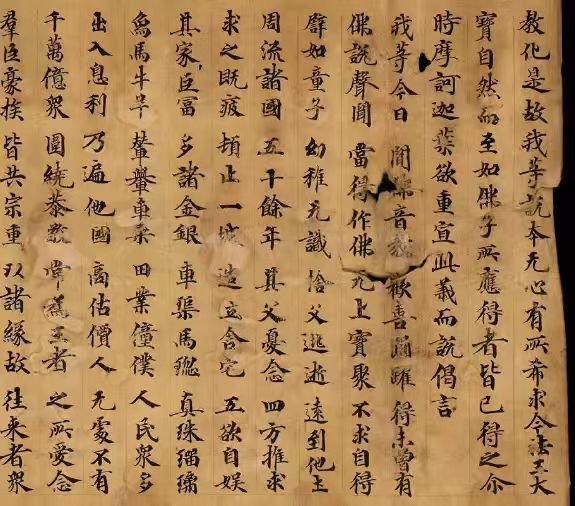 教化是故我等說本无心有所希求今法王大
寶自然而至如佛子所應得者皆已得之尒
時摩訶迦葉欲重宣此義而說偈言
我等今日 聞佛音教 歡喜踊躍 得未曾有
佛說聲聞 當得作佛 无上寶聚 不求自得
譬如童子 幼稚无識 捨父逃逝 遠到他土
周流諸國 五十餘年 其父憂念 四方推求
求之既疲 頓止一城 造立舍宅 五欲自娛
其家巨富 多諸金銀 車𤦲馬瑙 真珠瑠璃
烏馬牛羊 輦轝車乘 田業僮僕 人民衆多
出入息利 乃遍他國 啇估價人 无處不有
千萬億衆 圍繞恭敬 常為王者 之所愛念
羣臣豪族 皆共宗重 以諸緣故 往來者衆